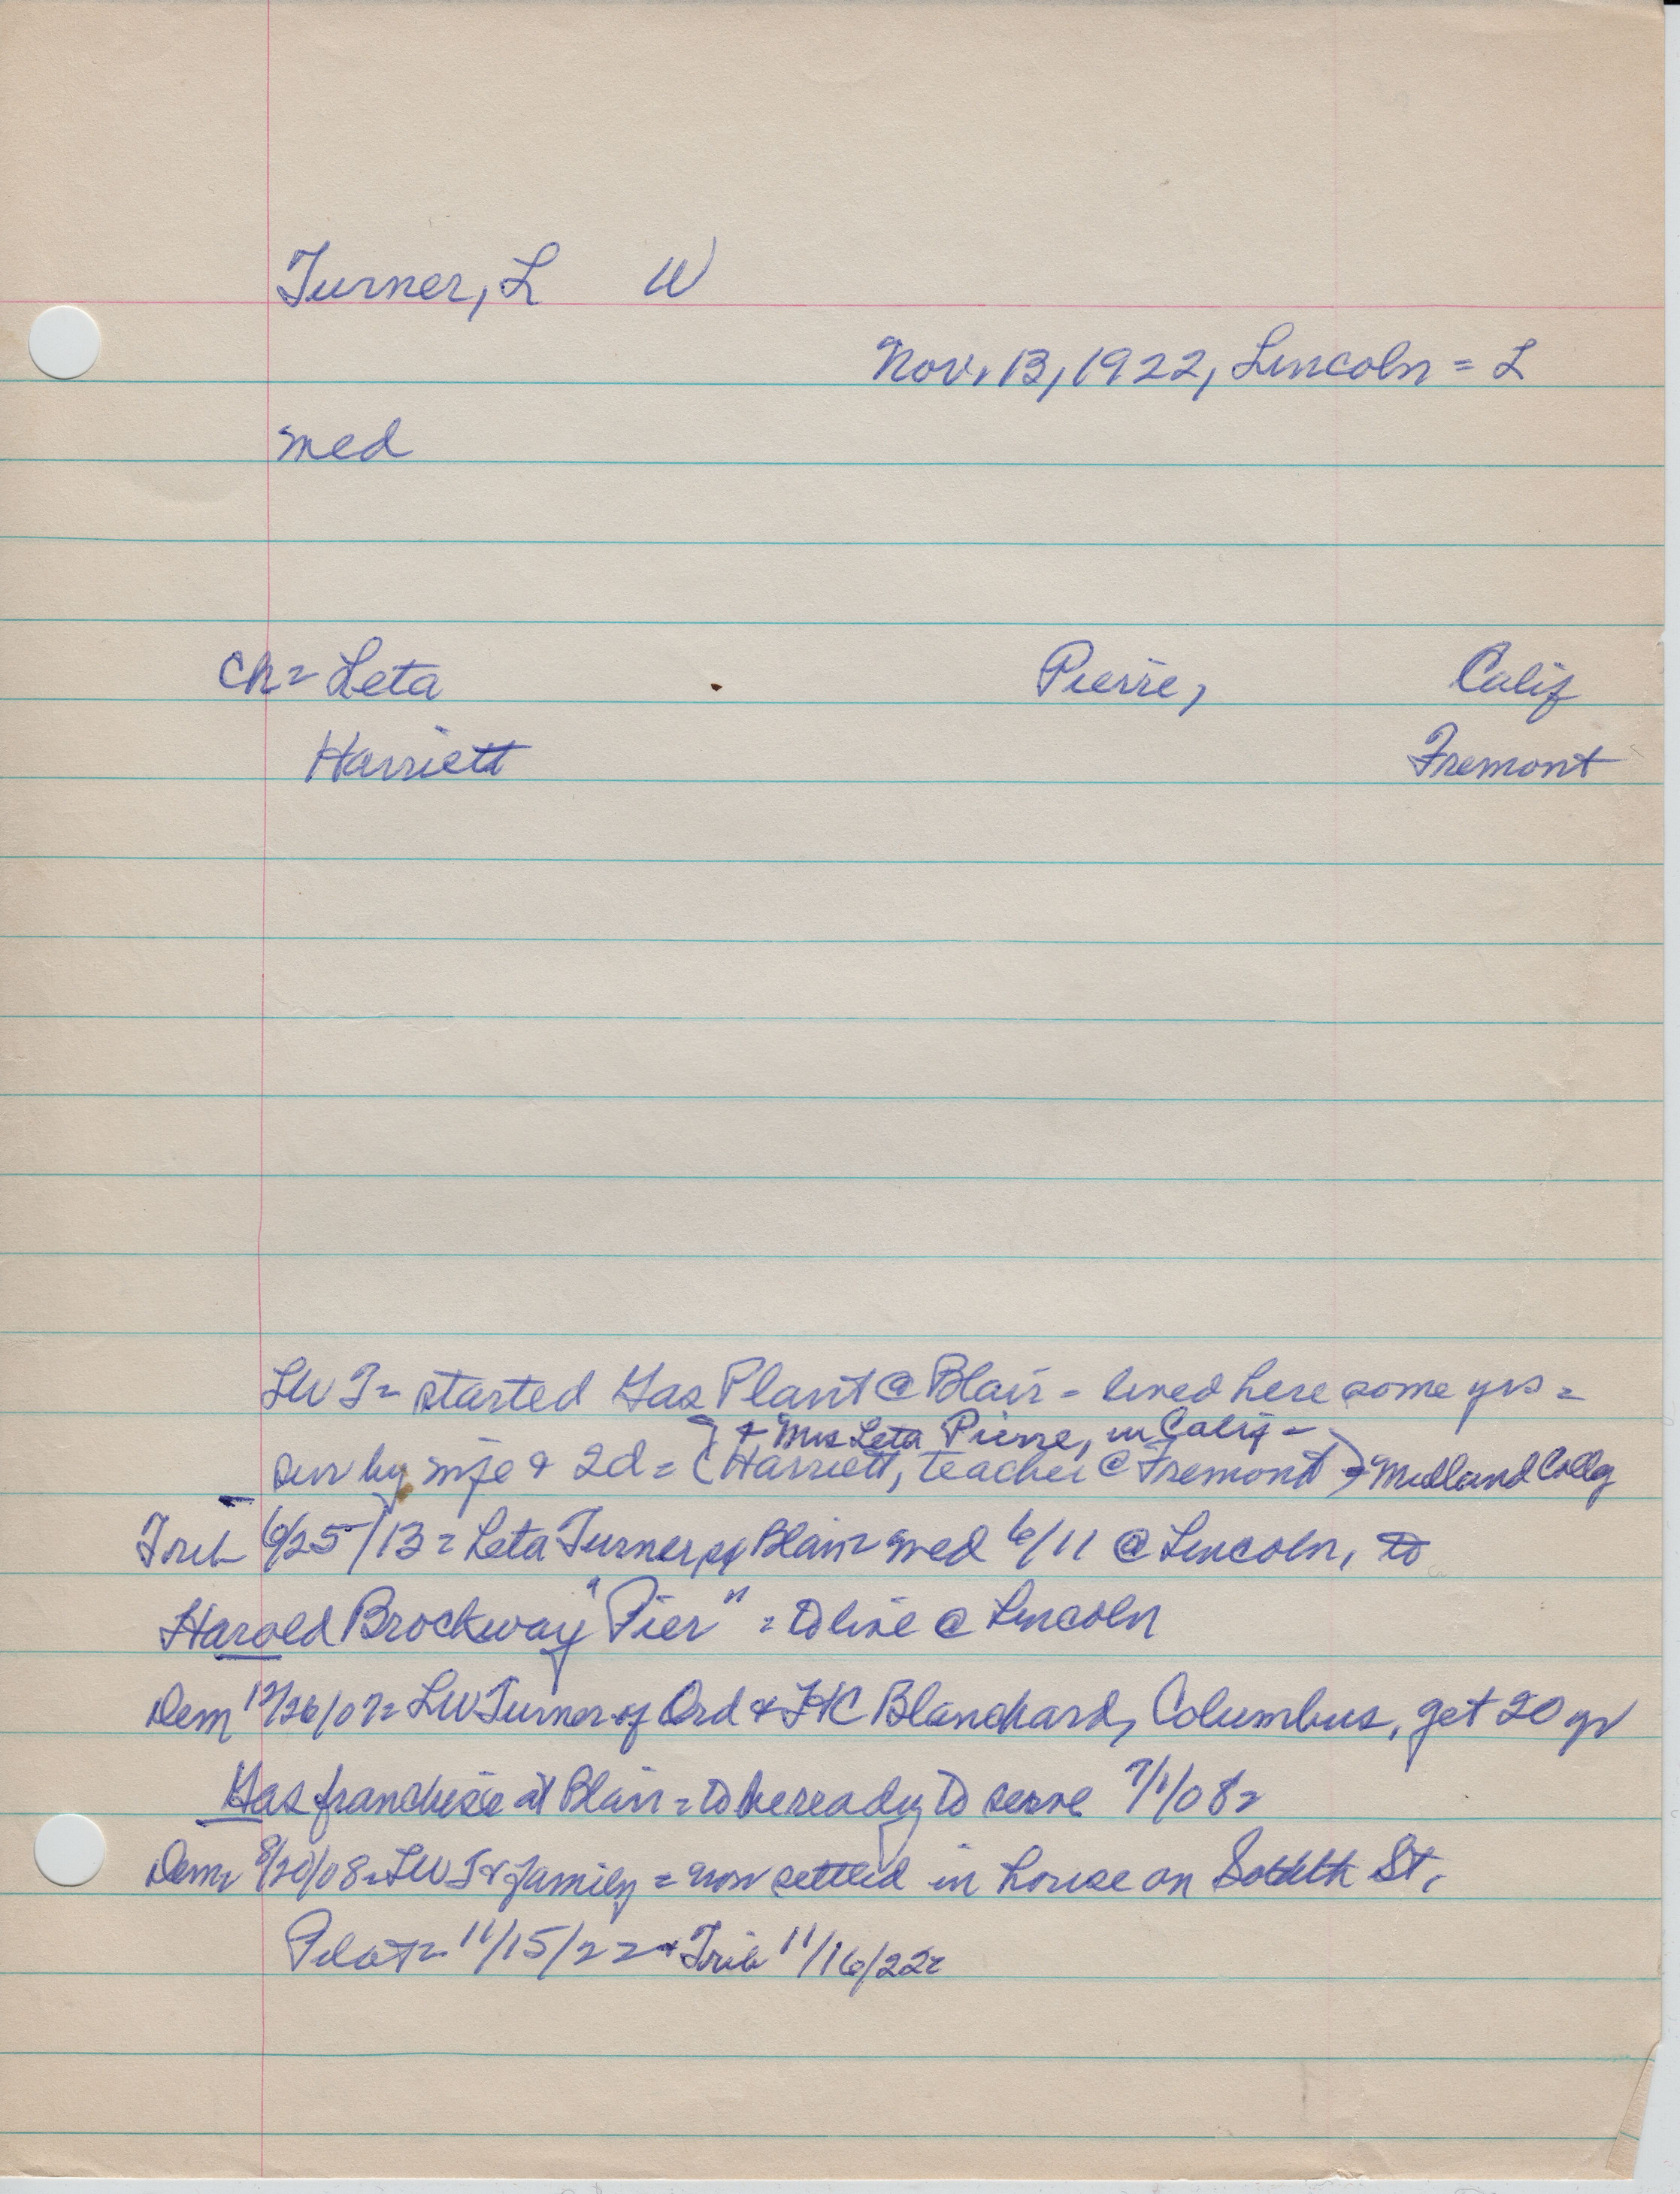 Turner, L W
Nov. 13, 1922, Lincoln = L
med
Ch = Leta Pierre, Calif
Harriett Fremont
LWT = started Gas Plant @ Blair - lived here some yrs =
& Mrs Leta Pierre, in Calif -
sur by wife & 2d = (Harriett, teacher @ Fremont) → Midland Collg
Trib 6/25/13 = Leta Turner, of Blair = med 6/11 @ Lincoln, to
Harold Brockway "Pier" = to live @ Lincoln
Dem 12/26/07 = LW Turner of Ord & HC Blanchard, Columbus, get 20 yr
Gas franchise at Blair = to be ready to serve 7/1/08 =
Dem 8/20/08 = LWT & family = now settled in house on South St.
Pilot = 11/15/22 & Trib 11/16/22 =